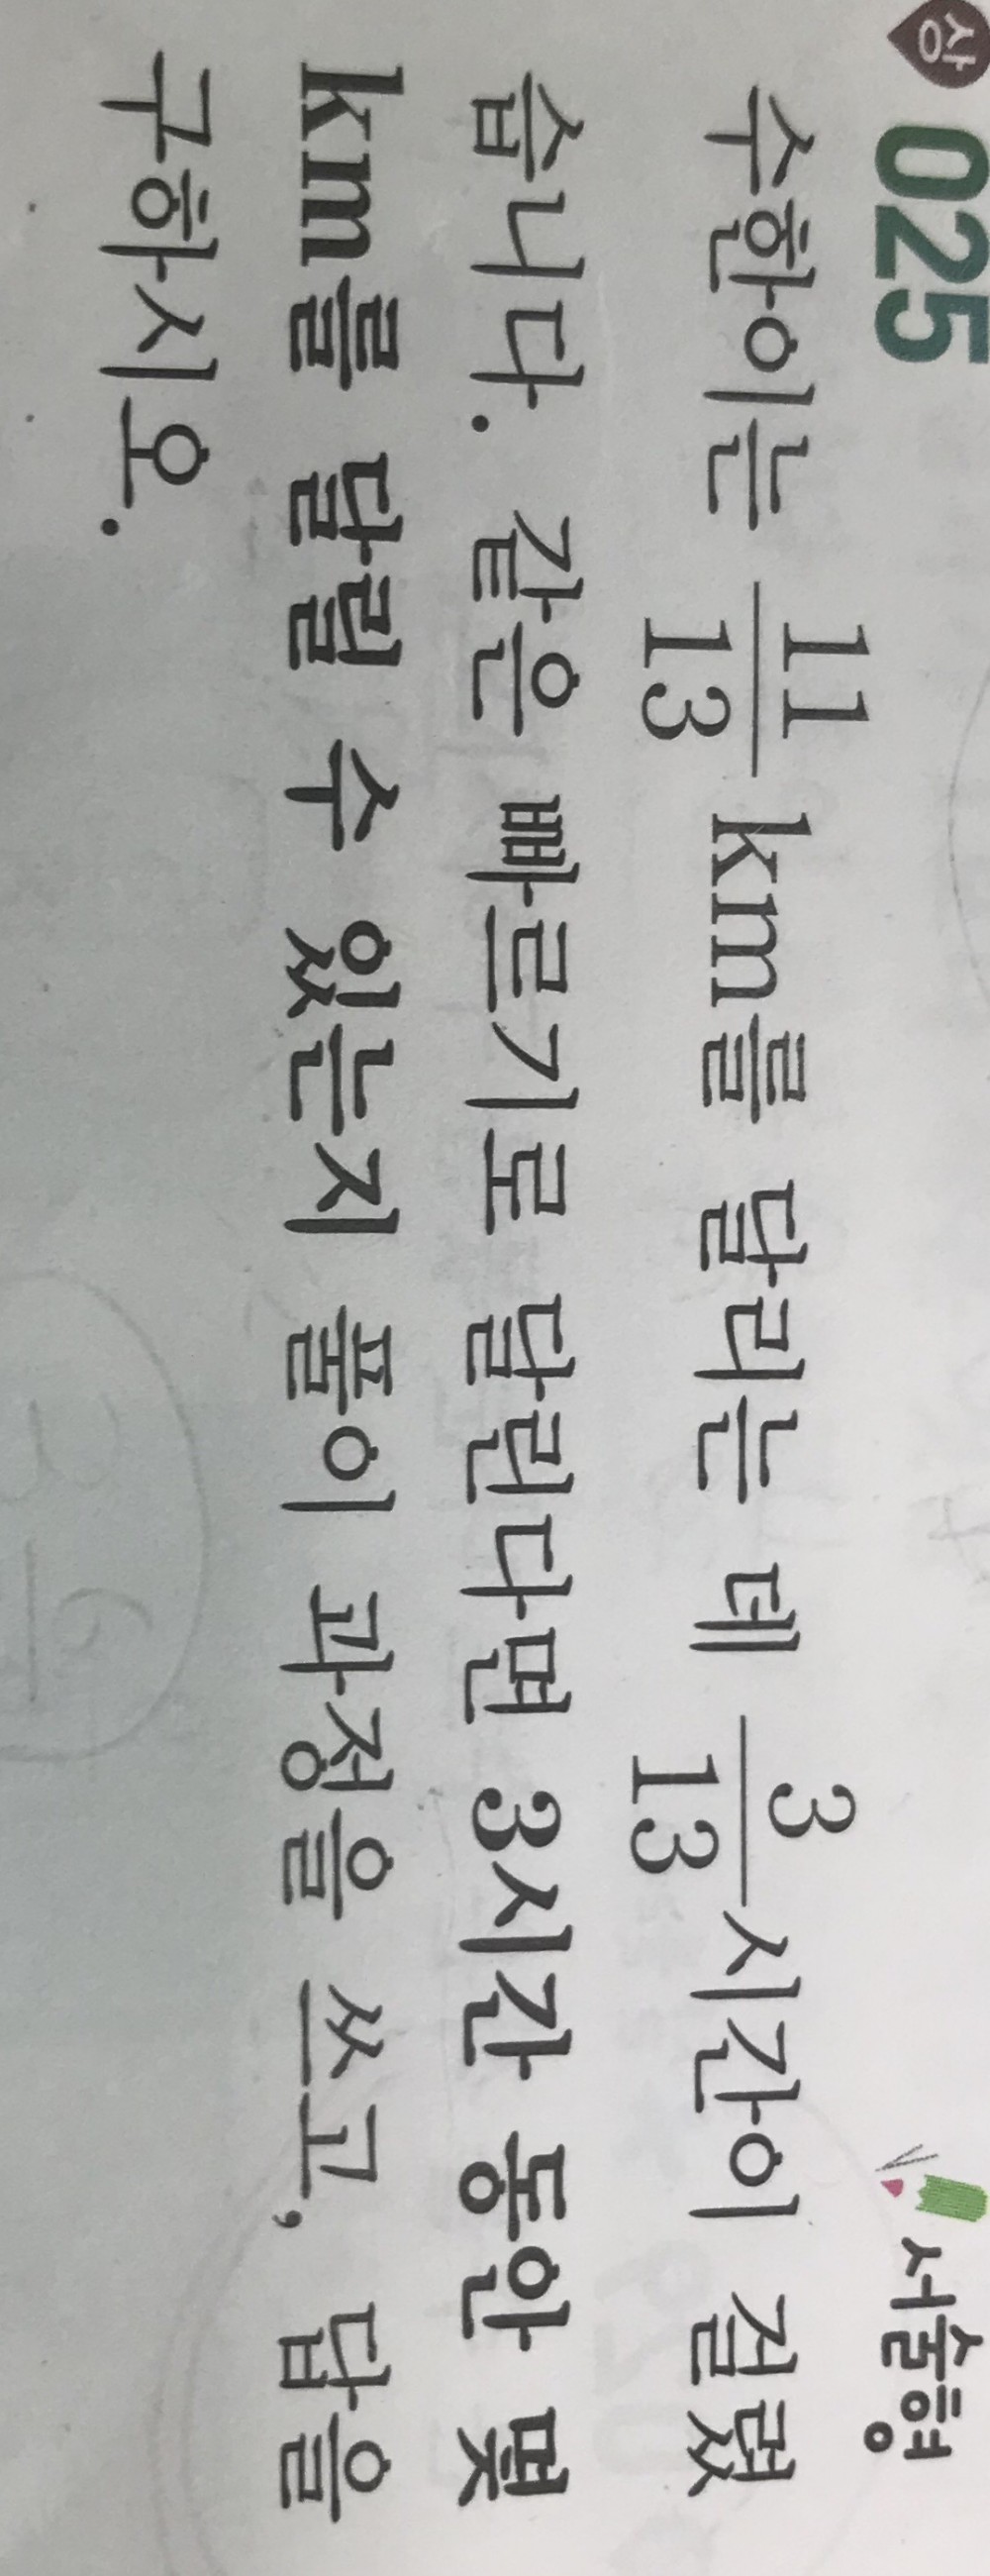 상 025 서술형
수한이는 11/13 km를 달리는 데 3/13시간이 걸렸
습니다. 같은 빠르기로 달린다면 3시간 동안 몇
km를 달릴 수 있는지 풀이 과정을 쓰고, 답을
구하시오.